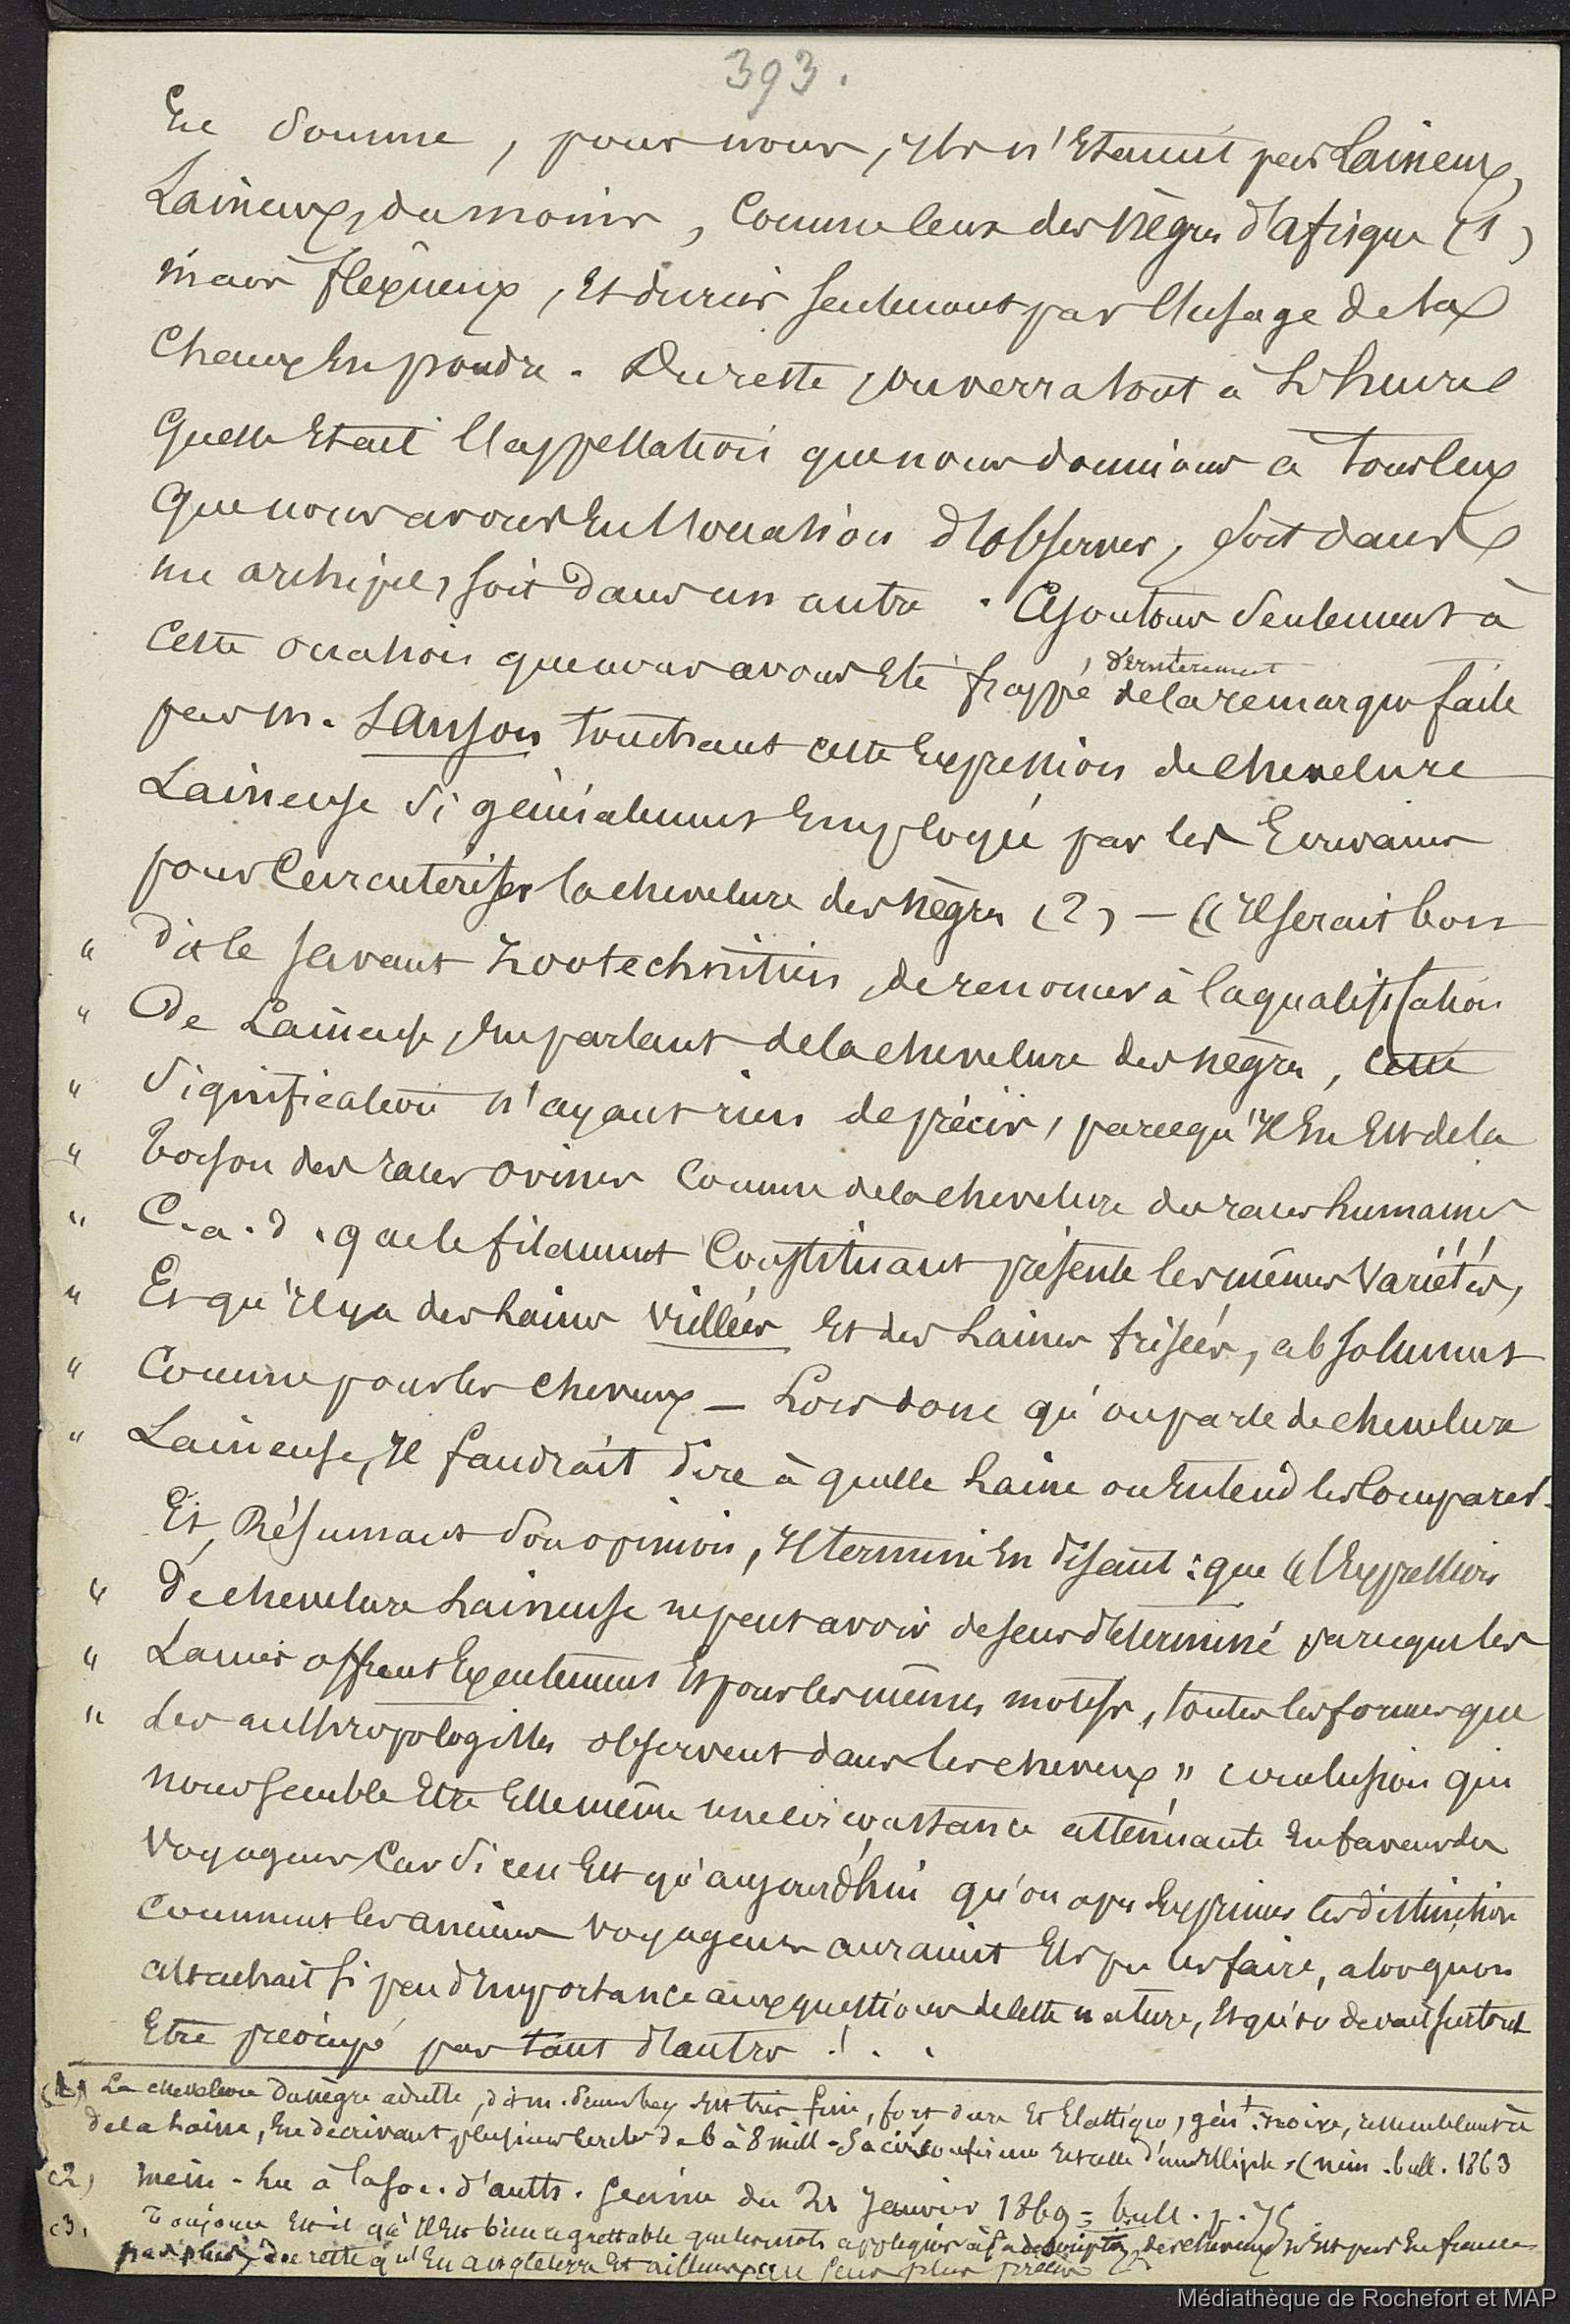 393.
En somme, pour nous, Ils n'Etaient pas Laineux,
Laineux, du moins, Comme ceux des Nègres d'afrique (1)
mais flexueux, Et durcis seulement par l'usage de la
Chaux En poudre. Du reste, on verra tout à L'heure
quelle Etait l'appellation que nous donnions à Tous ceux
que nous avons Eu l'occation d'observer, soit dans
un archipel, soit dans un autre. Ajoutons seulement à
cette occation que nous avons Eté frappé dernierement de la remarque faite
par M. SAnson touchant cette Expression de chevelure
Laineuse si généralement Employée par les Ecrivains
pour Caractériser la chevelure des Nègres (2) — « Il serait bon
" dit le savant zootechnitien, de renoncer à la qualification
" De Laineuse, En parlant de la chevelure des nègres, cette
" signification n'ayant rien de précis, parcequ'Il En Est de la
" toison des races ovines Comme de la chevelure des races humaines
" C.a.d. que le filament Constituant présente les mêmes Variétés,
" Et qu'Il y a des Laines vrillées Et des Laines frisées, absolument
" Comme pour les cheveux — Lors donc qu'on parle de chevelure
" Laineuse, Il faudrait dire à quelle Laine on Entend les Comparer.
Et, Résumant son opinion, Il termine En disant : que « l'Expression
" De chevelure Laineuse ne peut avoir de sens déterminé parceque les
" Laines offrent Exactement Et pour les mêmes motifs, toutes les formes que
" les anthropologistes observent dans les cheveux " conclusion qui
nous semble Etre Elle même une circonstance atténuante En faveur des
Voyageurs Car si ce n'Est qu'aujourd'hui qu'on a pu Exprimer ces distinction
Comment les anciens Voyageurs auraient Ils pu les faire, alors qu'on
attachait si peu d'Importance aux questions de cette nature, Et qu'on devait surtout
Etre préocupé par tant d'autres !..
(1) La chevelure du nègre adulte, dit M. Pruner bey Est très fine, fort dure Et Elastique, gént noire, ressemblant à
de la Laine, En décrivant plusieurs cercles de 6 à 8 mill. Sa circonférence Est celle d'une Ellipse. (mém. bull. 1863
(2) Mém. Lu à la soc. d'anth. séance du 21 Janvier 1869 = bull. p. 76
(3. Toujours Est il qu'Il Est bien regrettable que les mots appliqués à la description des cheveux n'Est pas En france
pas plus, du reste qu'En angleterre Et ailleurs, un sens plus précis
Médiathèque de Rochefort et MAP